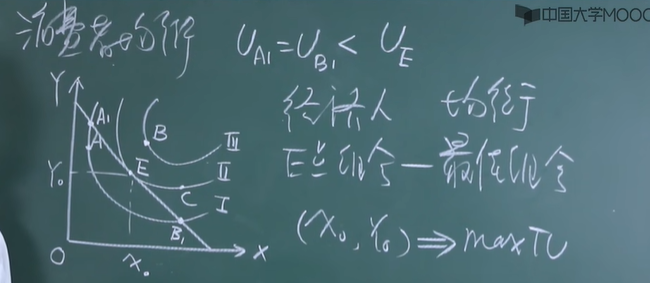 中国大学MOOC
消费者均衡
U_A1 = U_B1 < U_E
经济人 均衡
E点组合—最佳组合
(X₀, Y₀) ⇒ max TU
Y
A₁
A
B
E
Y₀
C
III
II
I
B₁
O
X₀
X